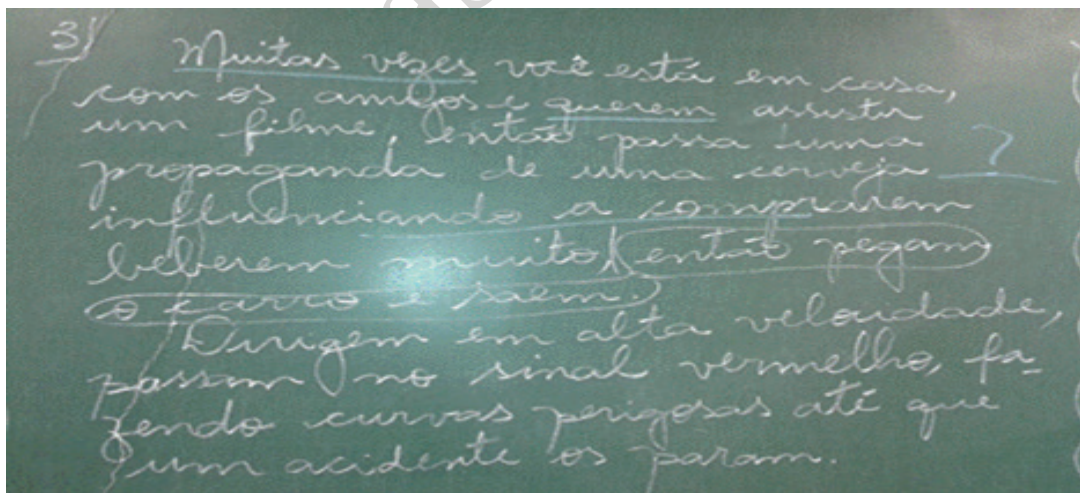 3)
Muitas vezes você está em casa,
com os amigos e querem assistir
um filme, então passa uma
propaganda de uma cerveja ?
influenciando a comprarem
beberem muito, então pegam
o carro e saem.
Dirigem em alta velocidade,
passam no sinal vermelho, fa-
zendo curvas perigosas até que
um acidente os param.